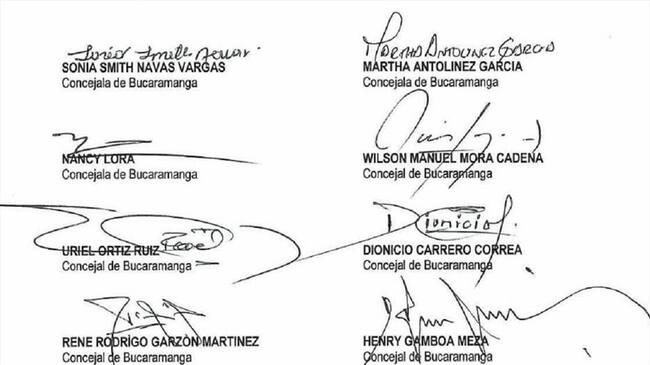 SONIA SMITH NAVAS VARGAS
Concejala de Bucaramanga
MARTHA ANTOLINEZ GARCIA
MARTHA ANTOLINEZ GARCIA
Concejala de Bucaramanga
NANCY LORA
Concejala de Bucaramanga
WILSON MANUEL MORA CADENA
Concejal de Bucaramanga
URIEL ORTIZ RUIZ
Concejal de Bucaramanga
Dionicio
DIONICIO CARRERO CORREA
Concejal de Bucaramanga
RENE RODRÌGO GARZÒN MARTINEZ
Concejal de Bucaramanga
HENRY GAMBOA MEZA
Concejal de Bucaramanga